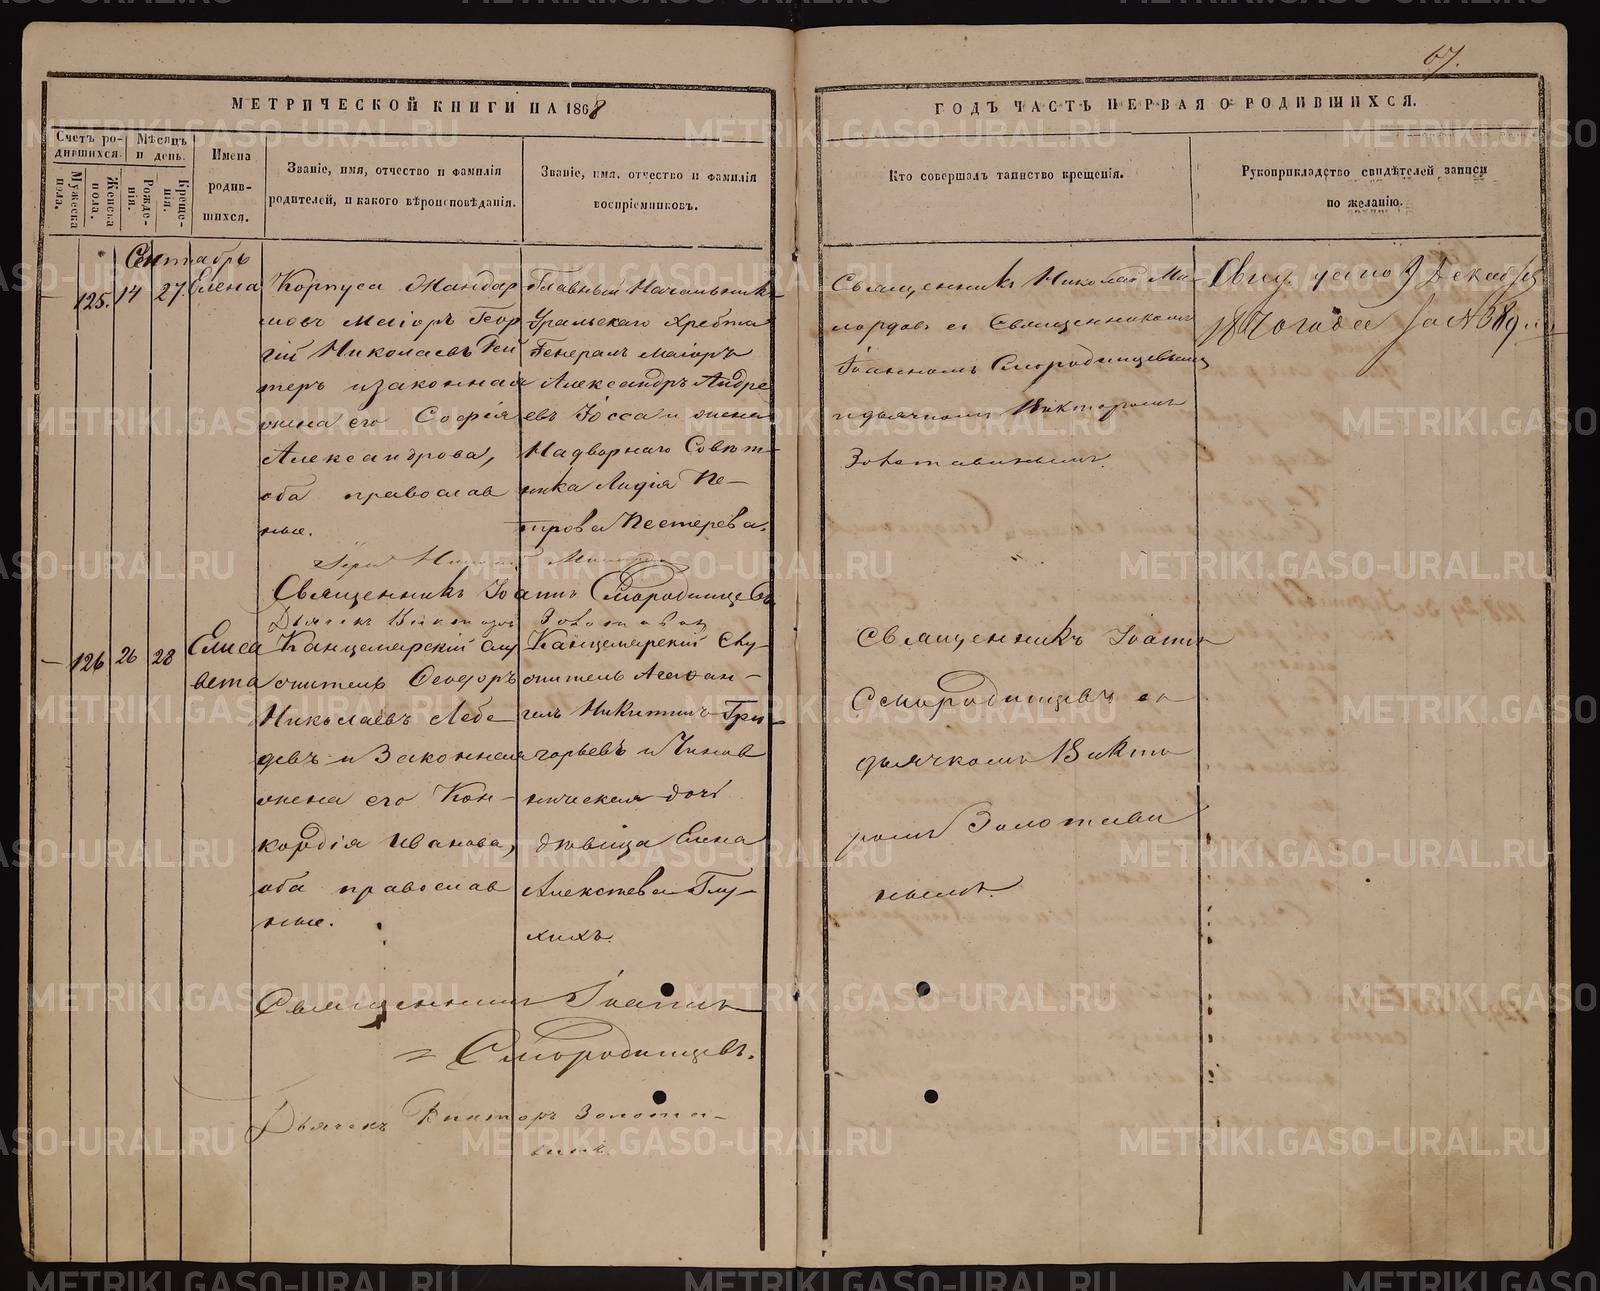 67.
МЕТРИЧЕСКОЙ КНИГИ НА 1868
ГОДЪ ЧАСТЬ ПЕРВАЯ О РОДИВШИХСЯ.
Счетъ ро-
дившихся.
Мѣсяцъ
и день.
Мужеска
пола.
Женска
пола.
Рожде-
нія.
Креще-
нія.
Имена
родив-
шихся.
Званіе, имя, отчество и фамилія
родителей, и какого вѣроисповѣданія.
Званіе, имя, отчество и фамилія
воспріемниковъ.
Кто совершалъ таинство крещенія.
Рукоприкладство свидѣтелей записи
по желанію.
Сентябрь
125. 14 27. Елена
Корпуса Жандар
мовъ Маіоръ Геор
гій Николаевъ Рей
теръ и законная
жена его Софія
Александрова,
оба православ
ные.
Главный Начальникъ
Уральскаго Хребта
Генералъ Маіоръ
Александръ Андре
евъ Іосса и жена
Надворнаго Совѣт-
ника Лидія Пе-
трова Пестерева.
Священникъ Николай Ми-
лордовъ съ Священникомъ
Іоанномъ Смородинцевымъ
и дьячкомъ Викторомъ
Золотавинымъ.
9 Декабря
Священникъ Іоаннъ Смородинцевъ
Дьячекъ Викторъ
126 26 28
Елиса
вета
Канцелярскій Слу
житель Ѳеодоръ
Николаевъ Лебе-
девъ и Законная
жена его Кон-
кордія Иванова,
оба православ
ные.
Канцелярскій Слу-
житель
Никитинъ Гри-
горьевъ и Чинов
ническая дочь
дѣвица Елена
Алексѣева Глу-
хихъ.
Священникъ Іоаннъ
Смородинцевъ съ
дьячкомъ Викто
ромъ Золотави
нымъ.
Священникъ Іоаннъ
= Смородинцевъ.
Дьячекъ Викторъ Золота-
винъ.
METRIKI.GASO-URAL.RU